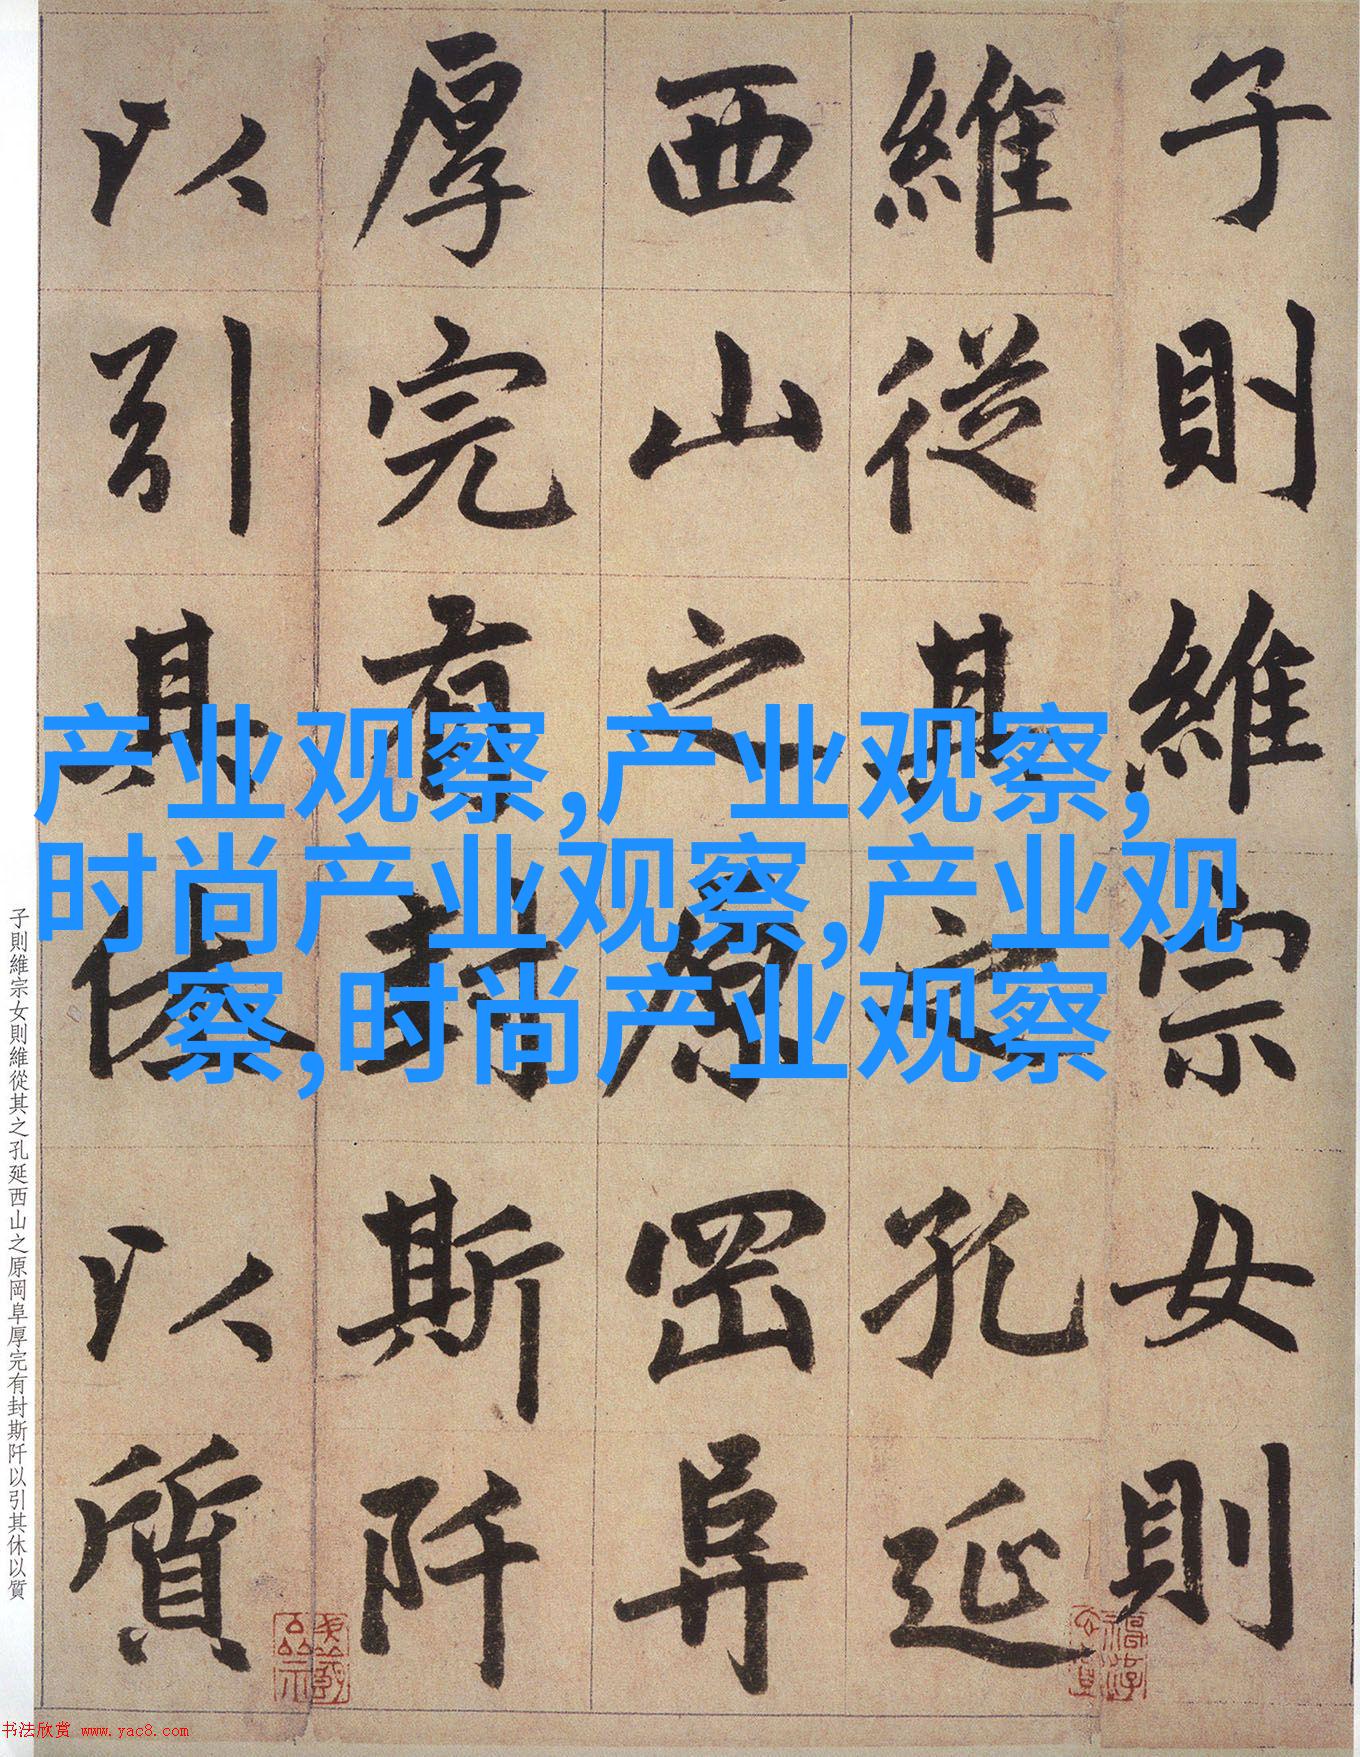 子則維宗女則
維從其之孔延
西山之原岡阜
厚完有封斯阡
以引其休以質
产业观察,产业观察,
时尚产业观察,产业观
察,时尚产业观察
子則維宗女則維從其之孔延西山之原岡阜厚完有封斯阡以引其休以質
书法欣赏 www.yac8.com